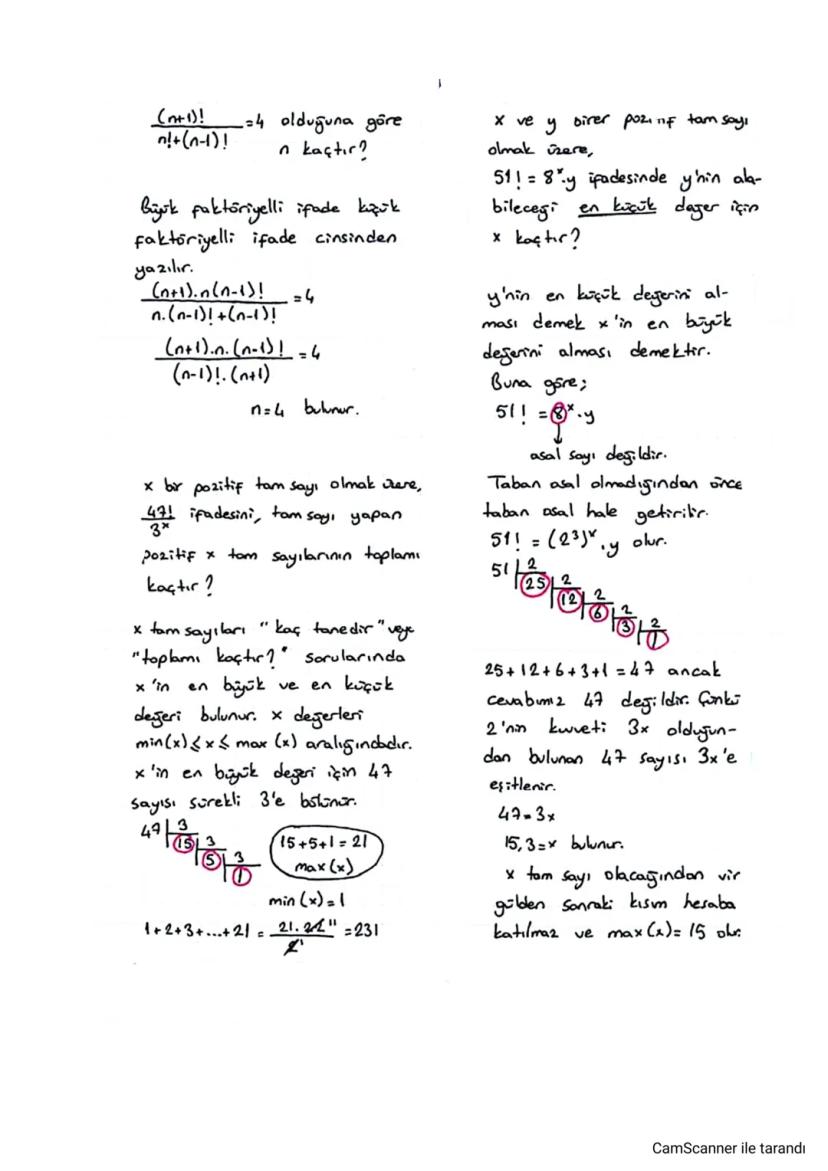 (n+1)!
n!+(n-1)! =4 olduğuna göre
n kaçtır?
Büyük faktöriyelli ifade küçük
faktöriyelli ifade cinsinden
yazılır.
(n+1).n(n-1)!
n.(n-1)!+(n-1)! =4
(n+1).n.(n-1)!
(n-1)!.(n+1) =4
n=4 bulunur.
x bir pozitif tam sayı olmak üzere,
47!
3ˣ ifadesini, tam sayı yapan
pozitif x tam sayılarının toplamı
kaçtır?
x tam sayıları "kaç tanedir" veya
"toplamı kaçtır?" sorularında
x'in en büyük ve en küçük
değeri bulunur. x değerleri
min(x)≤x≤ max (x) aralığındadır.
x'in en büyük değeri için 47
sayısı sürekli 3'e bölünür.
47 3
15 3
5 3
1
15+5+1=21
max(x)
min(x)=1
1+2+3+...+21 = 21.22 11
2 1 =231
x ve y birer pozitif tam sayı
olmak üzere,
51! = 8ˣ.y ifadesinde y'nin ala-
bileceği en küçük değer için
x kaçtır?
y'nin en küçük değerini al-
ması demek x'in en büyük
değerini alması demektir.
Buna göre;
51! = 8ˣ.y
asal sayı değildir.
Taban asal olmadığından önce
taban asal hale getirilir.
51! = (2³)ˣ.y olur.
51 2
25 2
12 2
6 2
3 2
1
25+12+6+3+1=47 ancak
cevabımız 47 değildir. Çünkü
2'nin kuvveti 3x olduğun-
dan bulunan 47 sayısı 3x'e
eşitlenir.
47=3x
15,3=x bulunur.
x tam sayı olacağından vir
gülden sonraki kısım hesaba
katılmaz ve max(x)=15 olur.
CamScanner ile tarandı